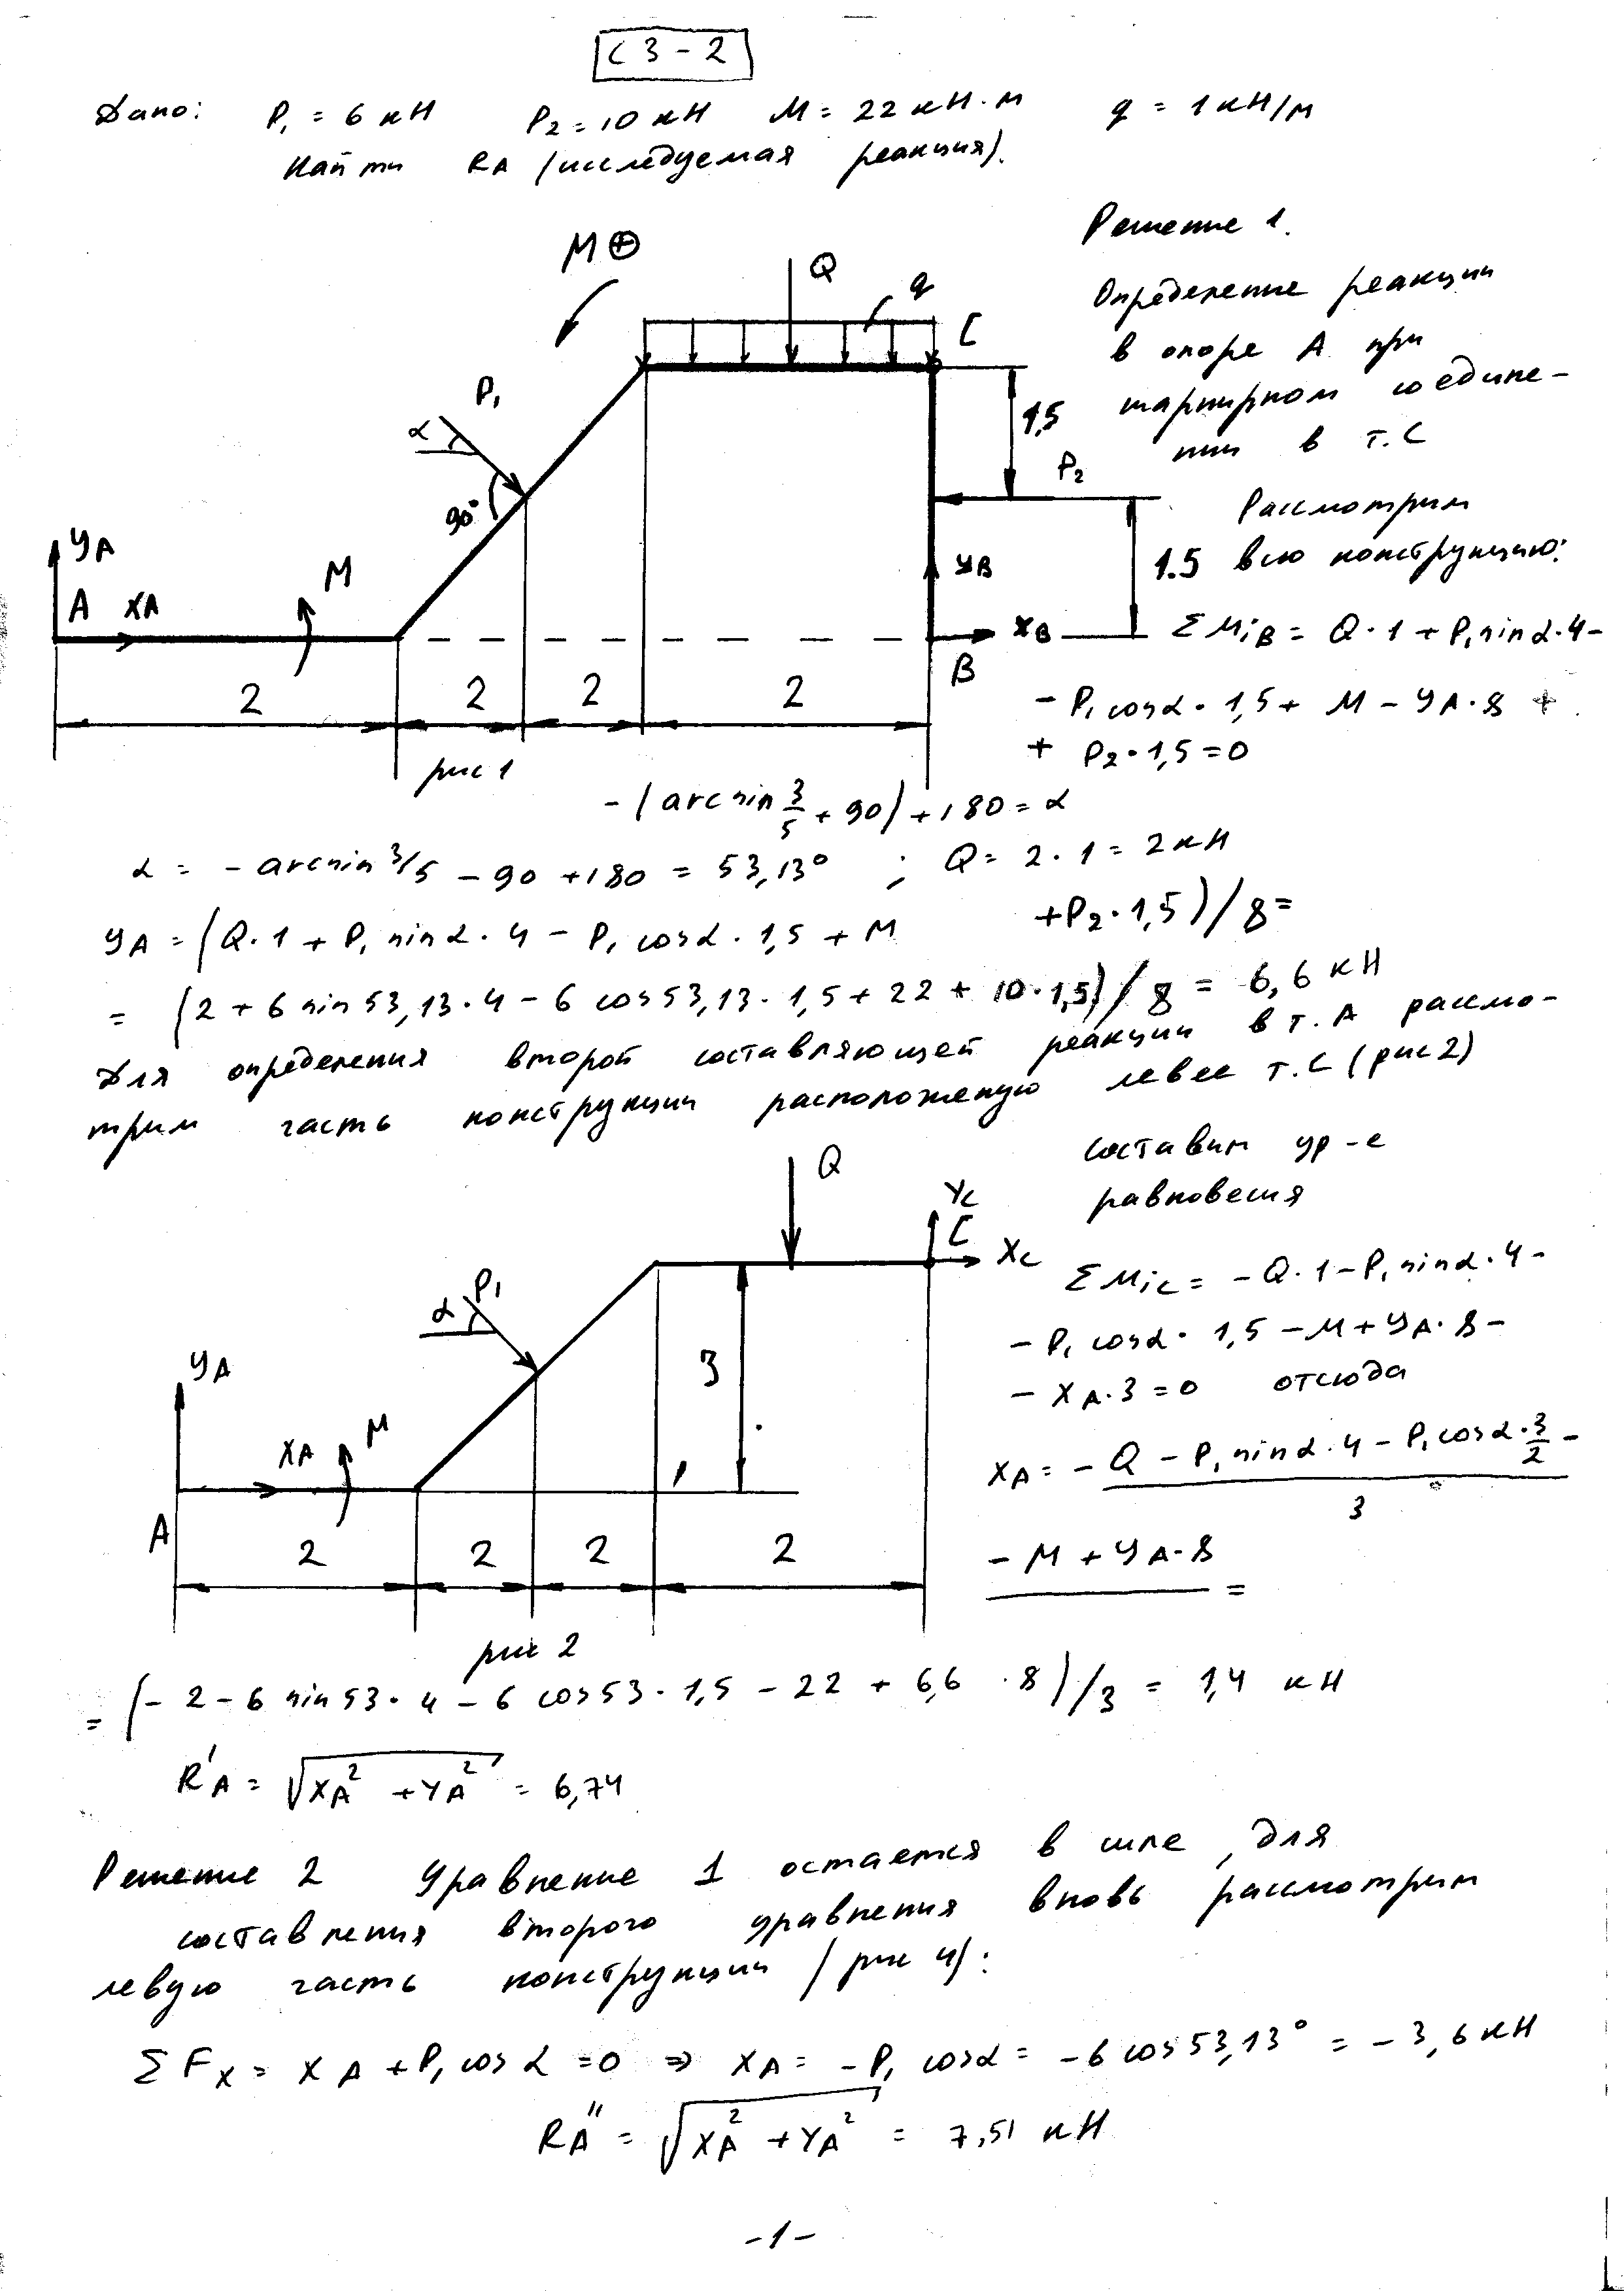 С 3 - 2
Дано: P₁ = 6 кН P₂ = 10 кН M = 22 кН·м q = 1 кН/м
Найти RA (исследуемая реакция).
Решение 1.
M ⊕
Q
q
C
Определение реакции
в опоре А при
шарнирном соедине-
нии в т. С
P₁
α
90°
1,5
P₂
Рассмотрим
1.5 всю конструкцию:
YA
A XA
M
YB
XB
B
ΣMiB = Q·1 + P₁ sinα·4 -
- P₁ cosα · 1,5 + M - YA·8 +
+ P₂·1,5 = 0
2 2 2 2
рис 1
-(arcsin 3/5 + 90) + 180 = α
α = - arcsin 3/5 - 90 + 180 = 53,13° ; Q = 2·1 = 2 кН
YA = (Q·1 + P₁ sinα·4 - P₁ cosα·1,5 + M +P₂·1,5)/8 =
= (2 + 6 sin 53,13·4 - 6 cos 53,13·1,5 + 22 + 10·1,5)/8 = 6,6 кН
Для определения второй составляющей реакции в т. А рассмо-
трим часть конструкции расположеную левее т. С (рис 2)
Составим ур-е
равновесия
Q
YC
C
XC
P₁
α
3
YA
XA
M
A
ΣMiC = - Q·1 - P₁ sinα·4 -
- P₁ cosα · 1,5 - M + YA·8 -
- XA·3 = 0 отсюда
XA = - Q - P₁ sinα·4 - P₁ cosα·3/2 -
3
- M + YA·8 =
2 2 2 2
рис 2
= (- 2 - 6 sin 53·4 - 6 cos 53·1,5 - 22 + 6,6 ·8)/3 = 1,4 кН
R'A = √XA² + YA² = 6,74
Решение 2 Уравнение 1 остается в силе, для
составления второго уравнения вновь рассмотрим
левую часть конструкции (рис 4):
ΣFx = XA + P₁ cosα = 0 ⇒ XA = -P₁ cosα = -6 cos 53,13° = -3,6 кН
RA'' = √XA² + YA² = 7,51 кН
-1-